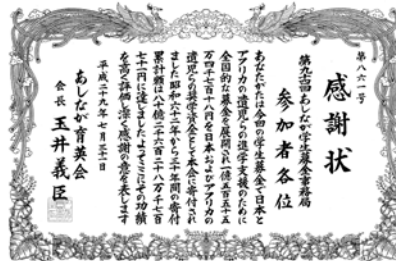 第八六一号
感謝状
第九十四回あしなが学生募金事務局
参加者各位
あなたがたは今回の学生募金で日本と
アフリカの遺児らの進学支援のために
全国的な募金を展開され一億五百五十五
万四千七百十八円を日本およびアフリカの
遺児らの奨学資金として本会に寄付され
ました昭和六十二年から三十年間の寄付
累計額は八十億二千六百二十八万千七百
七十一円に達しましたよってここにその功績
を高く評価し深く感謝の意を表します
平成二十九年七月三十一日
あしなが育英会
会長 玉井義臣